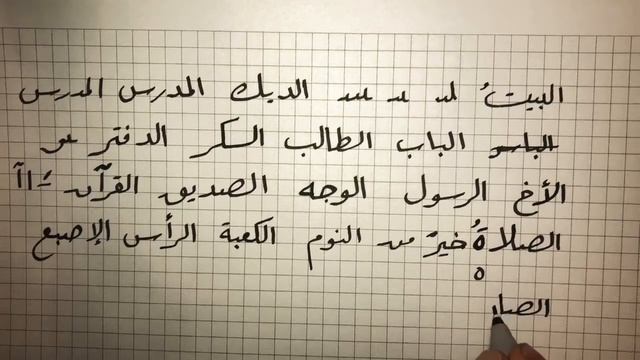 البيتُ الديك المدرس المدرس
الباب الطالب السكر الدفتر
الأخ الرسول الوجه الصديق القرآن آ
الصلاةُ خيرٌ من النوم الكعبة الرأس الإصبع
ه
الصلا